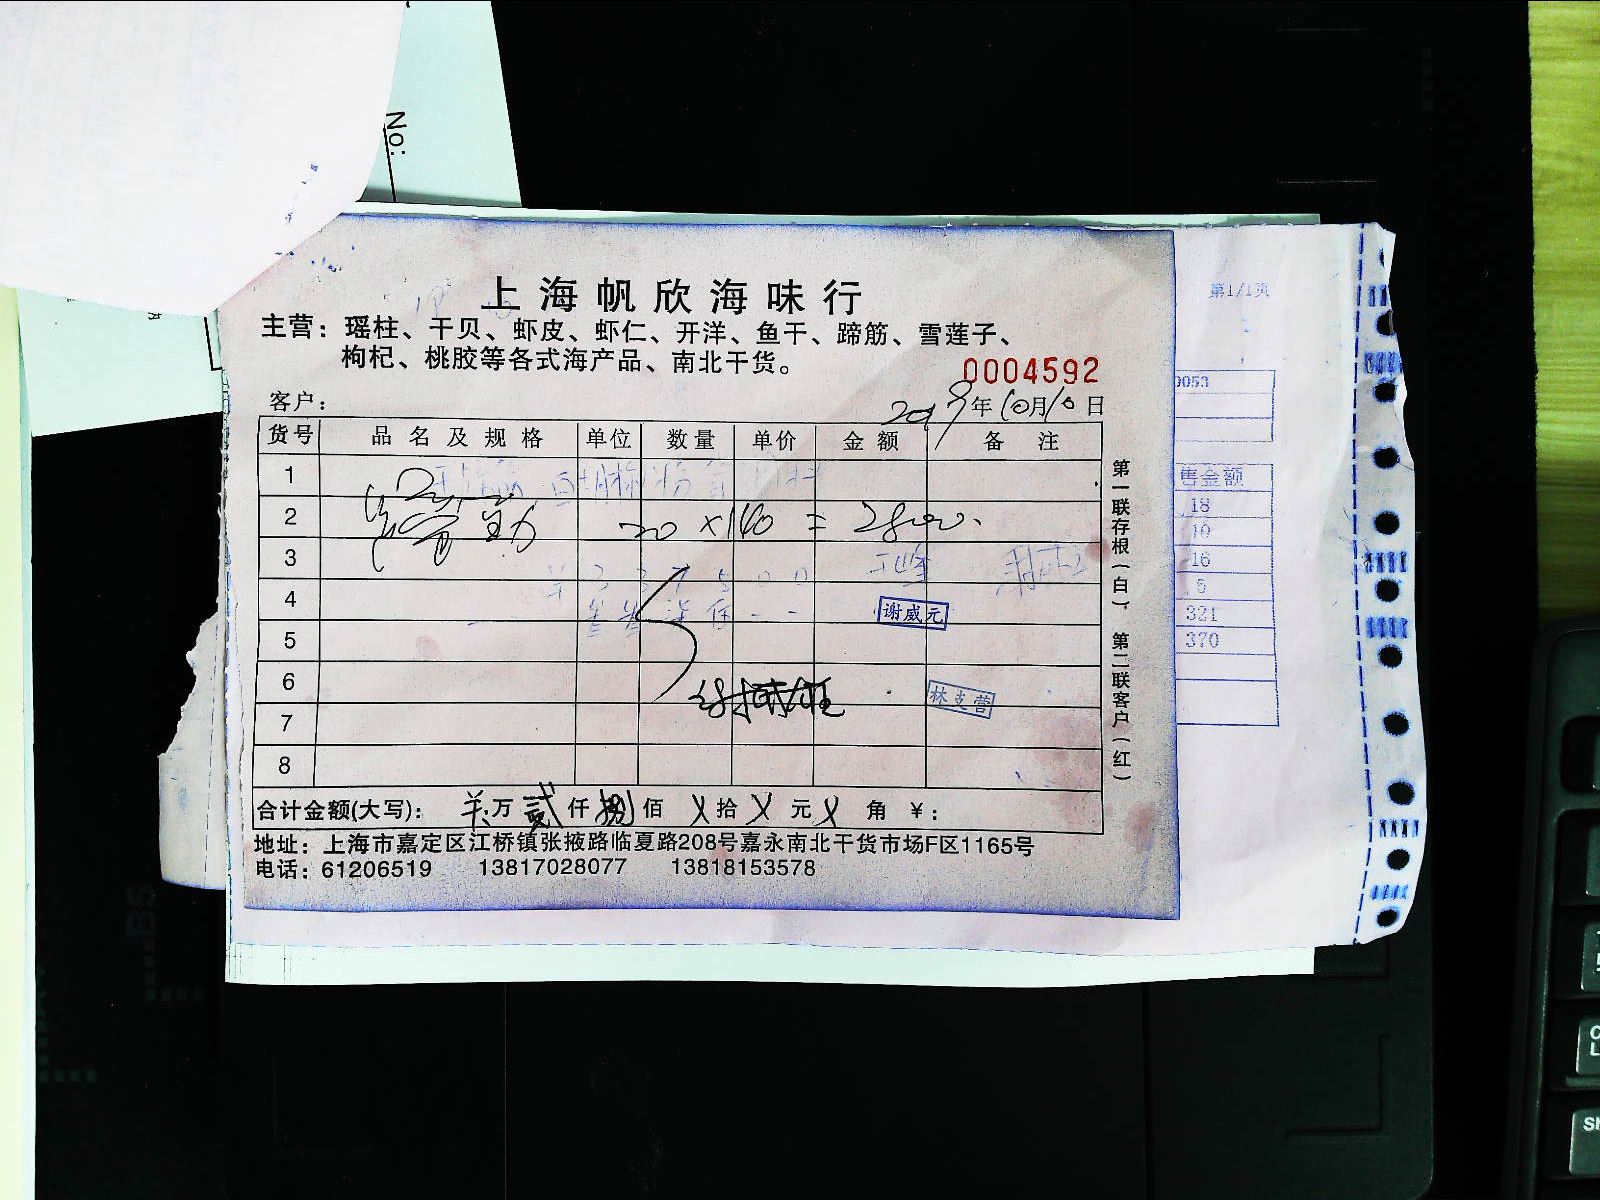 No:
上海帆欣海味行
主营：瑶柱、干贝、虾皮、虾仁、开洋、鱼干、蹄筋、雪莲子、
枸杞、桃胶等各式海产品、南北干货。
0004592
客户：
2019年10月10日
货号 品名及规格 单位 数量 单价 金额 备注
1
2 20×140=2800.
3
4 谢威元
5
6 林支营
7
8
合计金额(大写)： 万贰仟捌佰 拾 元 角 ￥：
地址：上海市嘉定区江桥镇张掖路临夏路208号嘉永南北干货市场F区1165号
电话：61206519 13817028077 13818153578
第一联存根（白）、第二联客户（红）
第1/1页
0053
售金额
18
10
16
321
370
B5